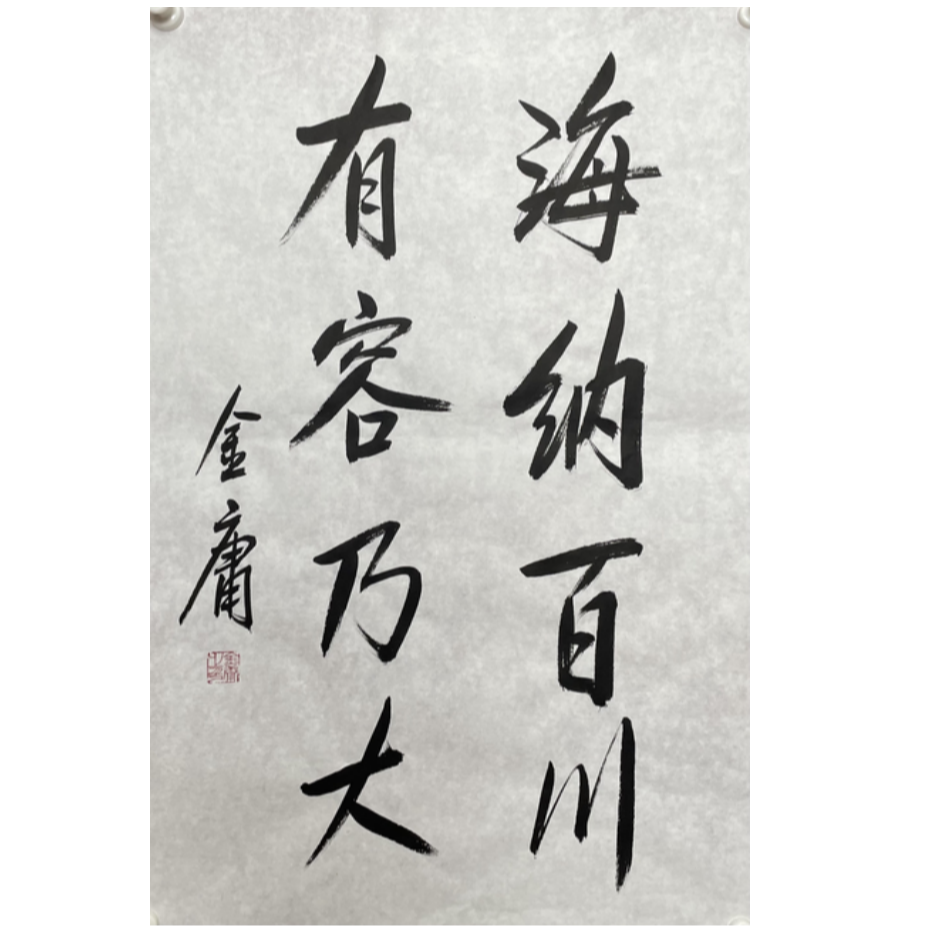 海纳百川
有容乃大
金庸